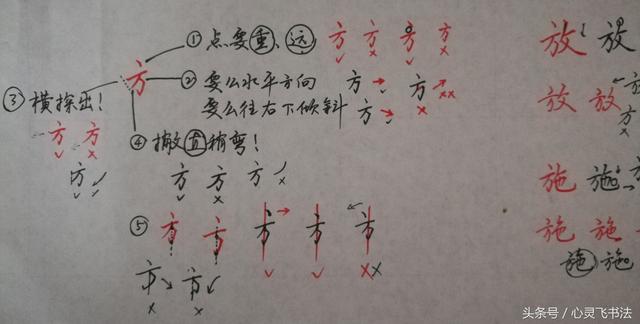 ①点要重、远
方 方 方 方
✓ × ✓ ××
②要么水平方向
要么往右下倾斜
方 ✓ 方 ××
方 ✓ ×
方
③横探出!
方 方
✓ ×
方
✓ ✓
④撇直稍弯!
方 方 方
✓ × ×
⑤方 方 方 方 方
✓ ✓ ××
方 方
× ×
放 放
放 放
方
×
施 施
施 施 施
施 施
头条号／心灵飞书法